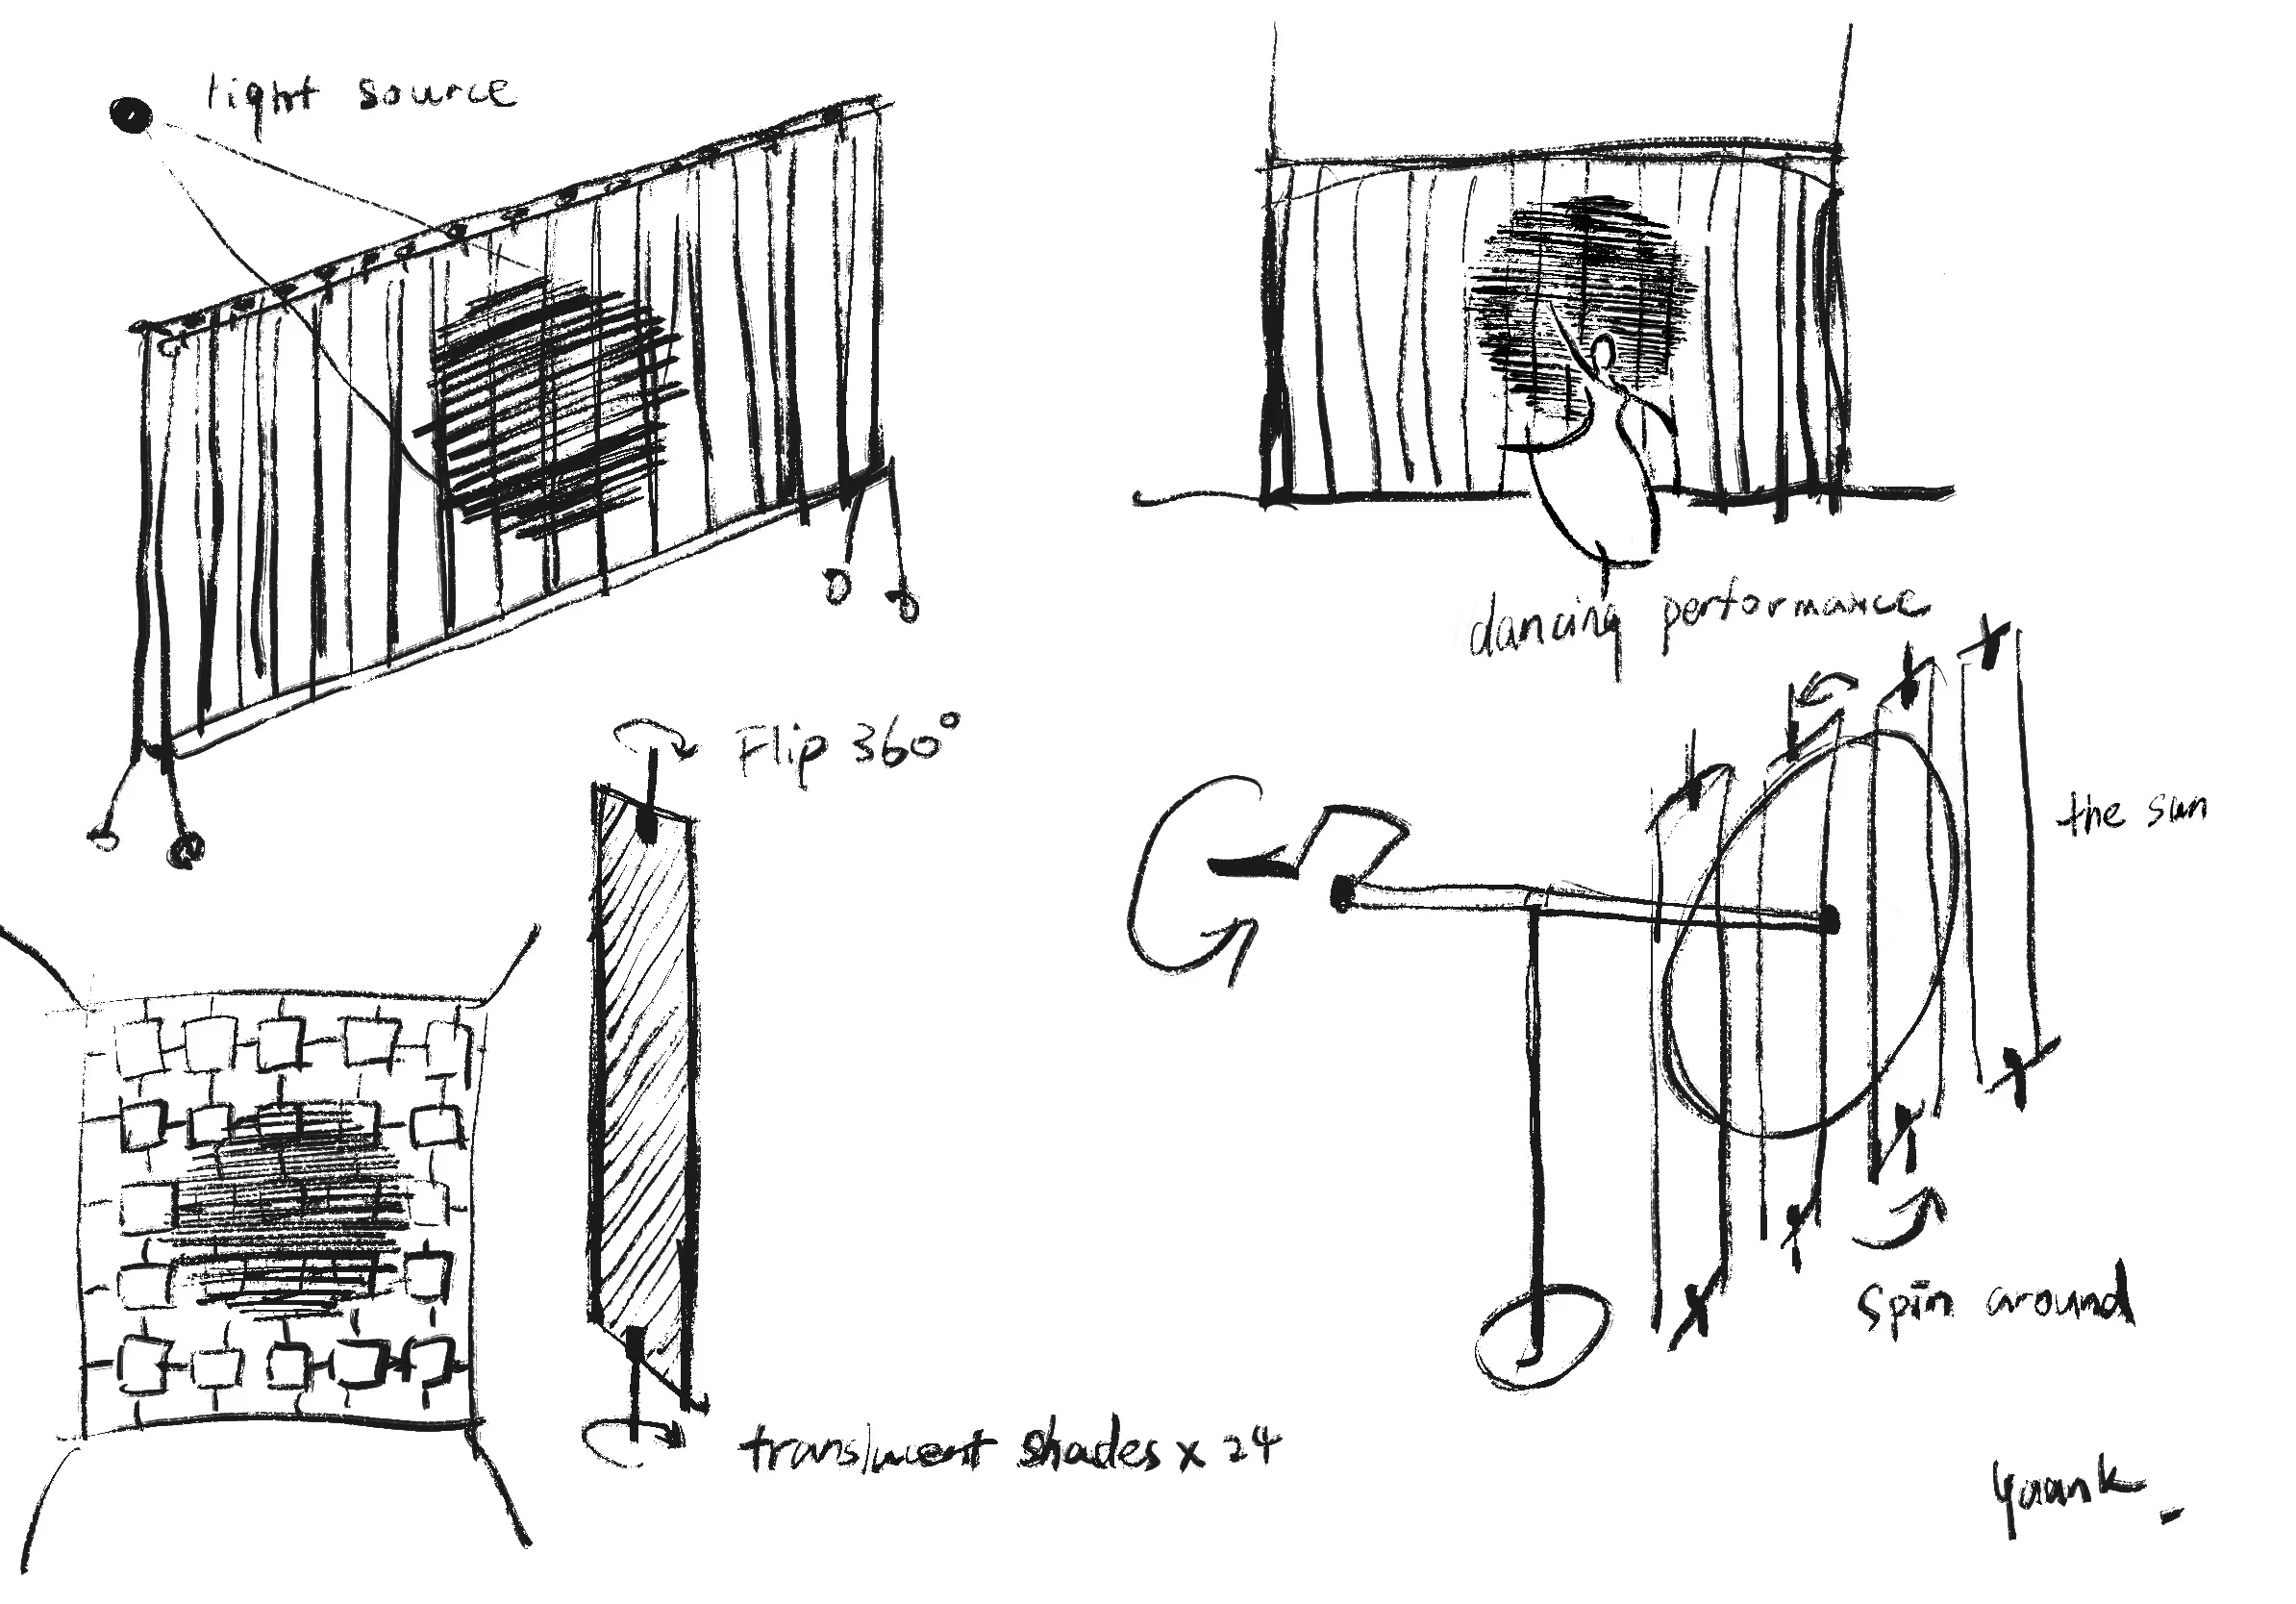 light source
dancing performance
Flip 360°
the sun
spin around
translucent shades x 24
yuank